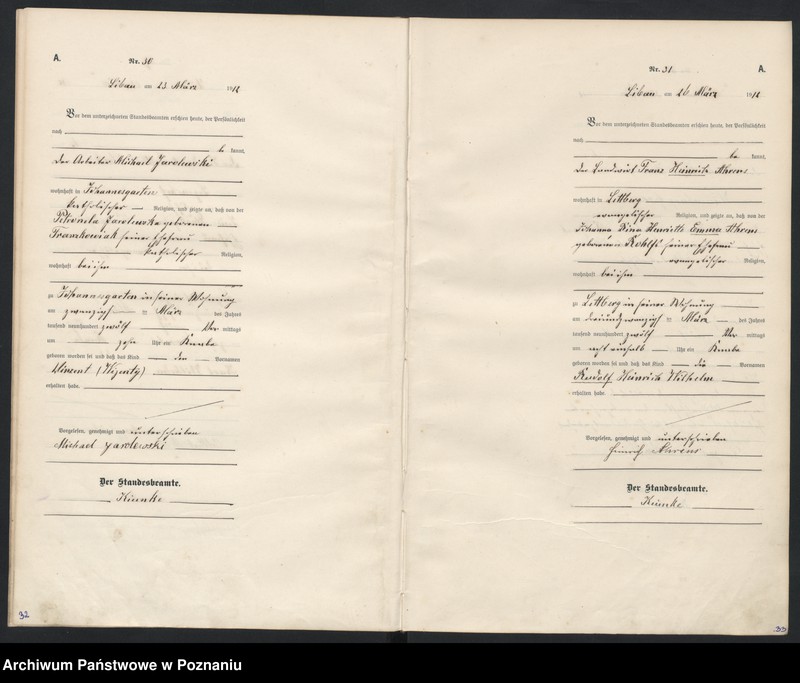 A.
Nr. 30
Liban am 23 März 1912
Vor dem unterzeichneten Standesbeamten erschien heute, der Persönlichkeit
nach
be kannt,
Der Arbeiter Michael
wohnhaft in Johannesgarten
katholischer Religion, und zeigte an, daß von der
geborenen
Frankowiak seiner Ehefrau
katholischer Religion,
wohnhaft bei ihm
zu Johannesgarten in seiner Wohnung
am zwanzigsten März des Jahres
tausend neunhundert zwölf Vor mittags
um zehn Uhr ein Knabe
geboren worden sei und daß das Kind den Vornamen
Vincent
erhalten habe.
Vorgelesen, genehmigt und unterschrieben
Michael
Der Standesbeamte.
32
Nr. 31 A.
Liban am 26 März 1912
Vor dem unterzeichneten Standesbeamten erschien heute, der Persönlichkeit
nach
be kannt,
Der Landwirt Franz Heinrich Ahrens
wohnhaft in Lettberg
evangelischer Religion, und zeigte an, daß von der
Johanna Emma Ahrens
geborenen Kohlfs seiner Ehefrau
evangelischer Religion,
wohnhaft bei ihm
zu Lettberg in seiner Wohnung
am März des Jahres
tausend neunhundert zwölf Vor mittags
um acht einhalb Uhr ein Knabe
geboren worden sei und daß das Kind die Vornamen
Rudolf Heinrich Wilhelm
erhalten habe.
Vorgelesen, genehmigt und unterschrieben
Heinrich Ahrens
Der Standesbeamte.
33
Archiwum Państwowe w Poznaniu